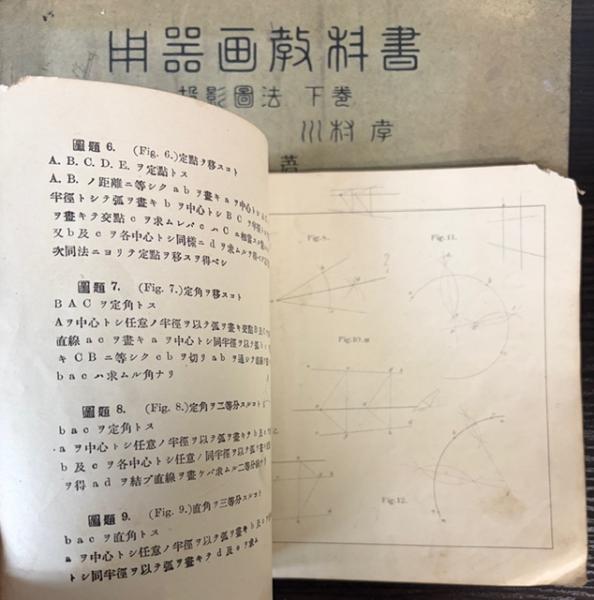 用器画教科書
投影圖法 下巻
川村 孝
著
圖題 6. (Fig. 6.)定點ヲ移スコト
A. B. C. D. E. ヲ定點トス
A. B. ノ距離ニ等シク a b ヲ畫キ a ヲ中心トシ
半徑トシテ弧ヲ畫キ b ヲ中心トシ B C ヲ半徑
ヲ畫キテ交點 c ヲ求ムレバ c ハ C ニ相當
又 b 及 c ヲ各中心トシ同樣ニ d ヲ求ムルヲ得ベ
次同法ニヨリテ定點ヲ移スヲ得ベシ
圖題 7. (Fig. 7.)定角ヲ移スコト
B A C ヲ定角トス
A ヲ中心トシ任意ノ半徑ヲ以テ弧ヲ畫キ交點
直線 a c ヲ畫キ a ヲ中心トシ同半徑ヲ以テ弧
キ C B ニ等シク c b ヲ切リ a b ヲ通シ
b a c ハ求ムル角ナリ
圖題 8. (Fig. 8.)定角ヲ二等分スルコト
b a c ヲ定角トス
a ヲ中心トシ任意ノ半徑ヲ以テ弧ヲ畫キテ b
b 及 c ヲ各中心トシ任意ノ同半徑ヲ以テ弧ヲ畫
ヲ得 a d ヲ結ブ直線ヲ畫ケバ求ムル二等分線
圖題 9. (Fig. 9.)直角ヲ三等分スルコト
b a c ヲ直角トス
a ヲ中心トシ任意ノ半徑ヲ以テ弧ヲ畫キ b 及
トシ同半徑ヲ以テ弧ヲ畫キテ d 及 e ヲ求
Fig.9.
Fig.11.
Fig.10.
Fig.12.